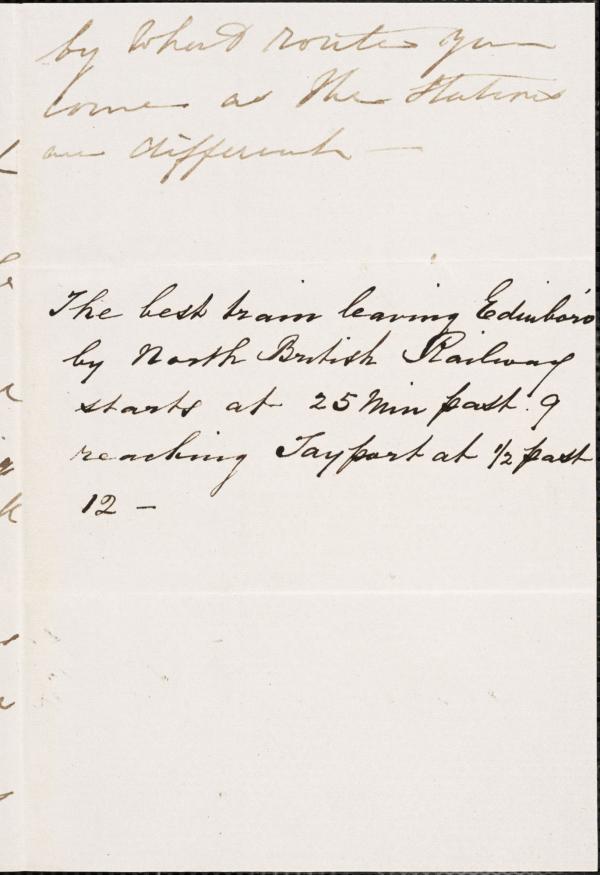 by what route you
come as the Stations
are different —
The best train leaving Edinboro'
by North British Railway
starts at 25 Min past 9
reaching Tayport at ½ past
12 —